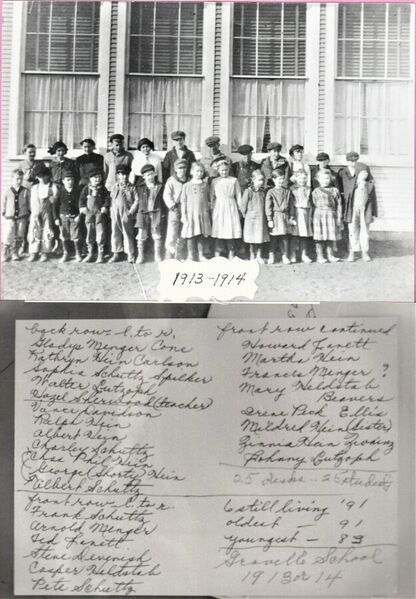 1913-1914
back row: L. to r.
Gladys Menger Cone
Kathryn Hein Carlson
Sophia Schultz Spilker
Walter Lutzoph
Hazel Sherwood (teacher)
Vance Davidson
Ralph Hein
Albert Hein
Charley Schultz
"Phil" Hein
George (Shorty) Hein
Wilbert Schultz
front row L. to r.
Frank Schultz
Arnold Menger
Ted Fanett
Steve Devenish
Casper Heldstab
Pete Schultz
front row continued
Howard Fanett
Martha Hein
Francis Menger ?
Mary Heldstab
Beavers
Irene Peck Ellis
Mildred Hein (sister)
Zinnia Hein
Lutzoph
25 desks - 25 students
6 still living '91
oldest - 91
youngest - 83
Graville School
1913 or 14